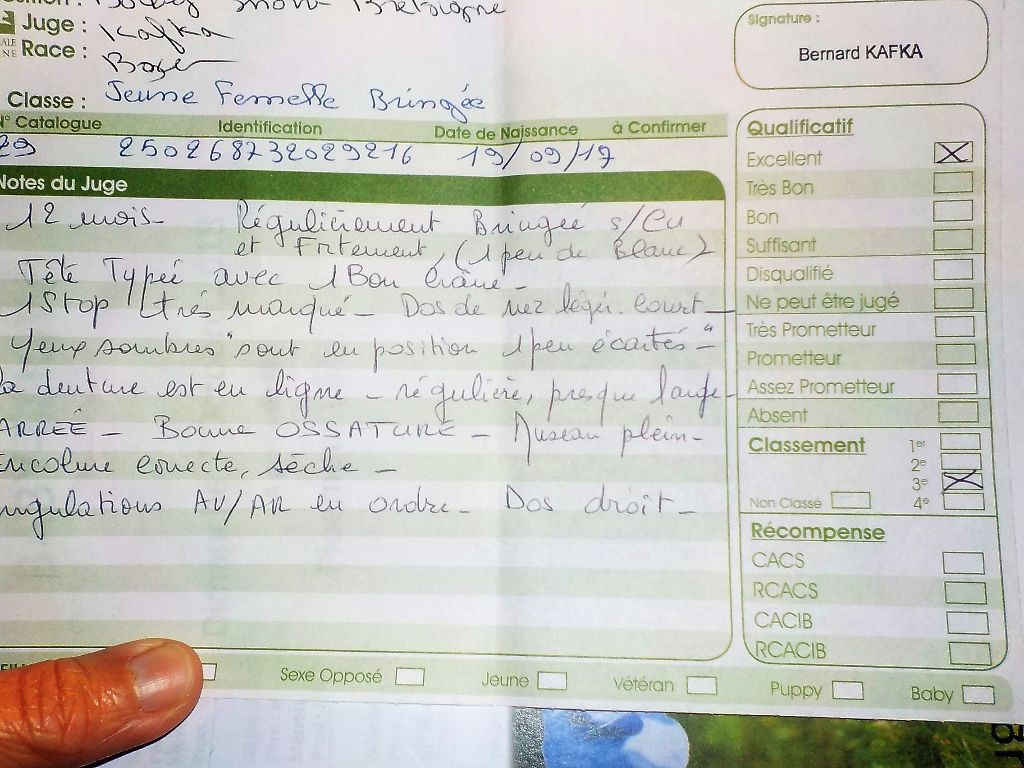 Show Bretagne
Juge : Kafka
Race : Boxer
Classe : Jeune Femelle Bringée
N° Catalogue Identification Date de Naissance à Confirmer
29 250268732029216 19/09/17
Notes du Juge
12 mois - Régulièrement Bringeé s/Cu
et Frtement, (1 peu de Blanc)
Tête Typeé avec 1 Bon crâne -
1 Stop très marqué - Dos de nez légèr. court -
Yeux sombres "sont en position 1 peu écartés -"
la denture est en ligne - régulière, presque large -
ARREÉ - Bonne OSSATURE - Museau plein -
Encolure correcte, sèche -
Angulations AV/AR en ordre - Dos droit -
Signature :
Bernard KAFKA
Qualificatif
Excellent
Très Bon
Bon
Suffisant
Disqualifié
Ne peut être jugé
Très Prometteur
Prometteur
Assez Prometteur
Absent
Classement 1er
2e
3e
Non Classé 4e
Récompense
CACS
RCACS
CACIB
RCACIB
Sexe Opposé Jeune Vétéran Puppy Baby